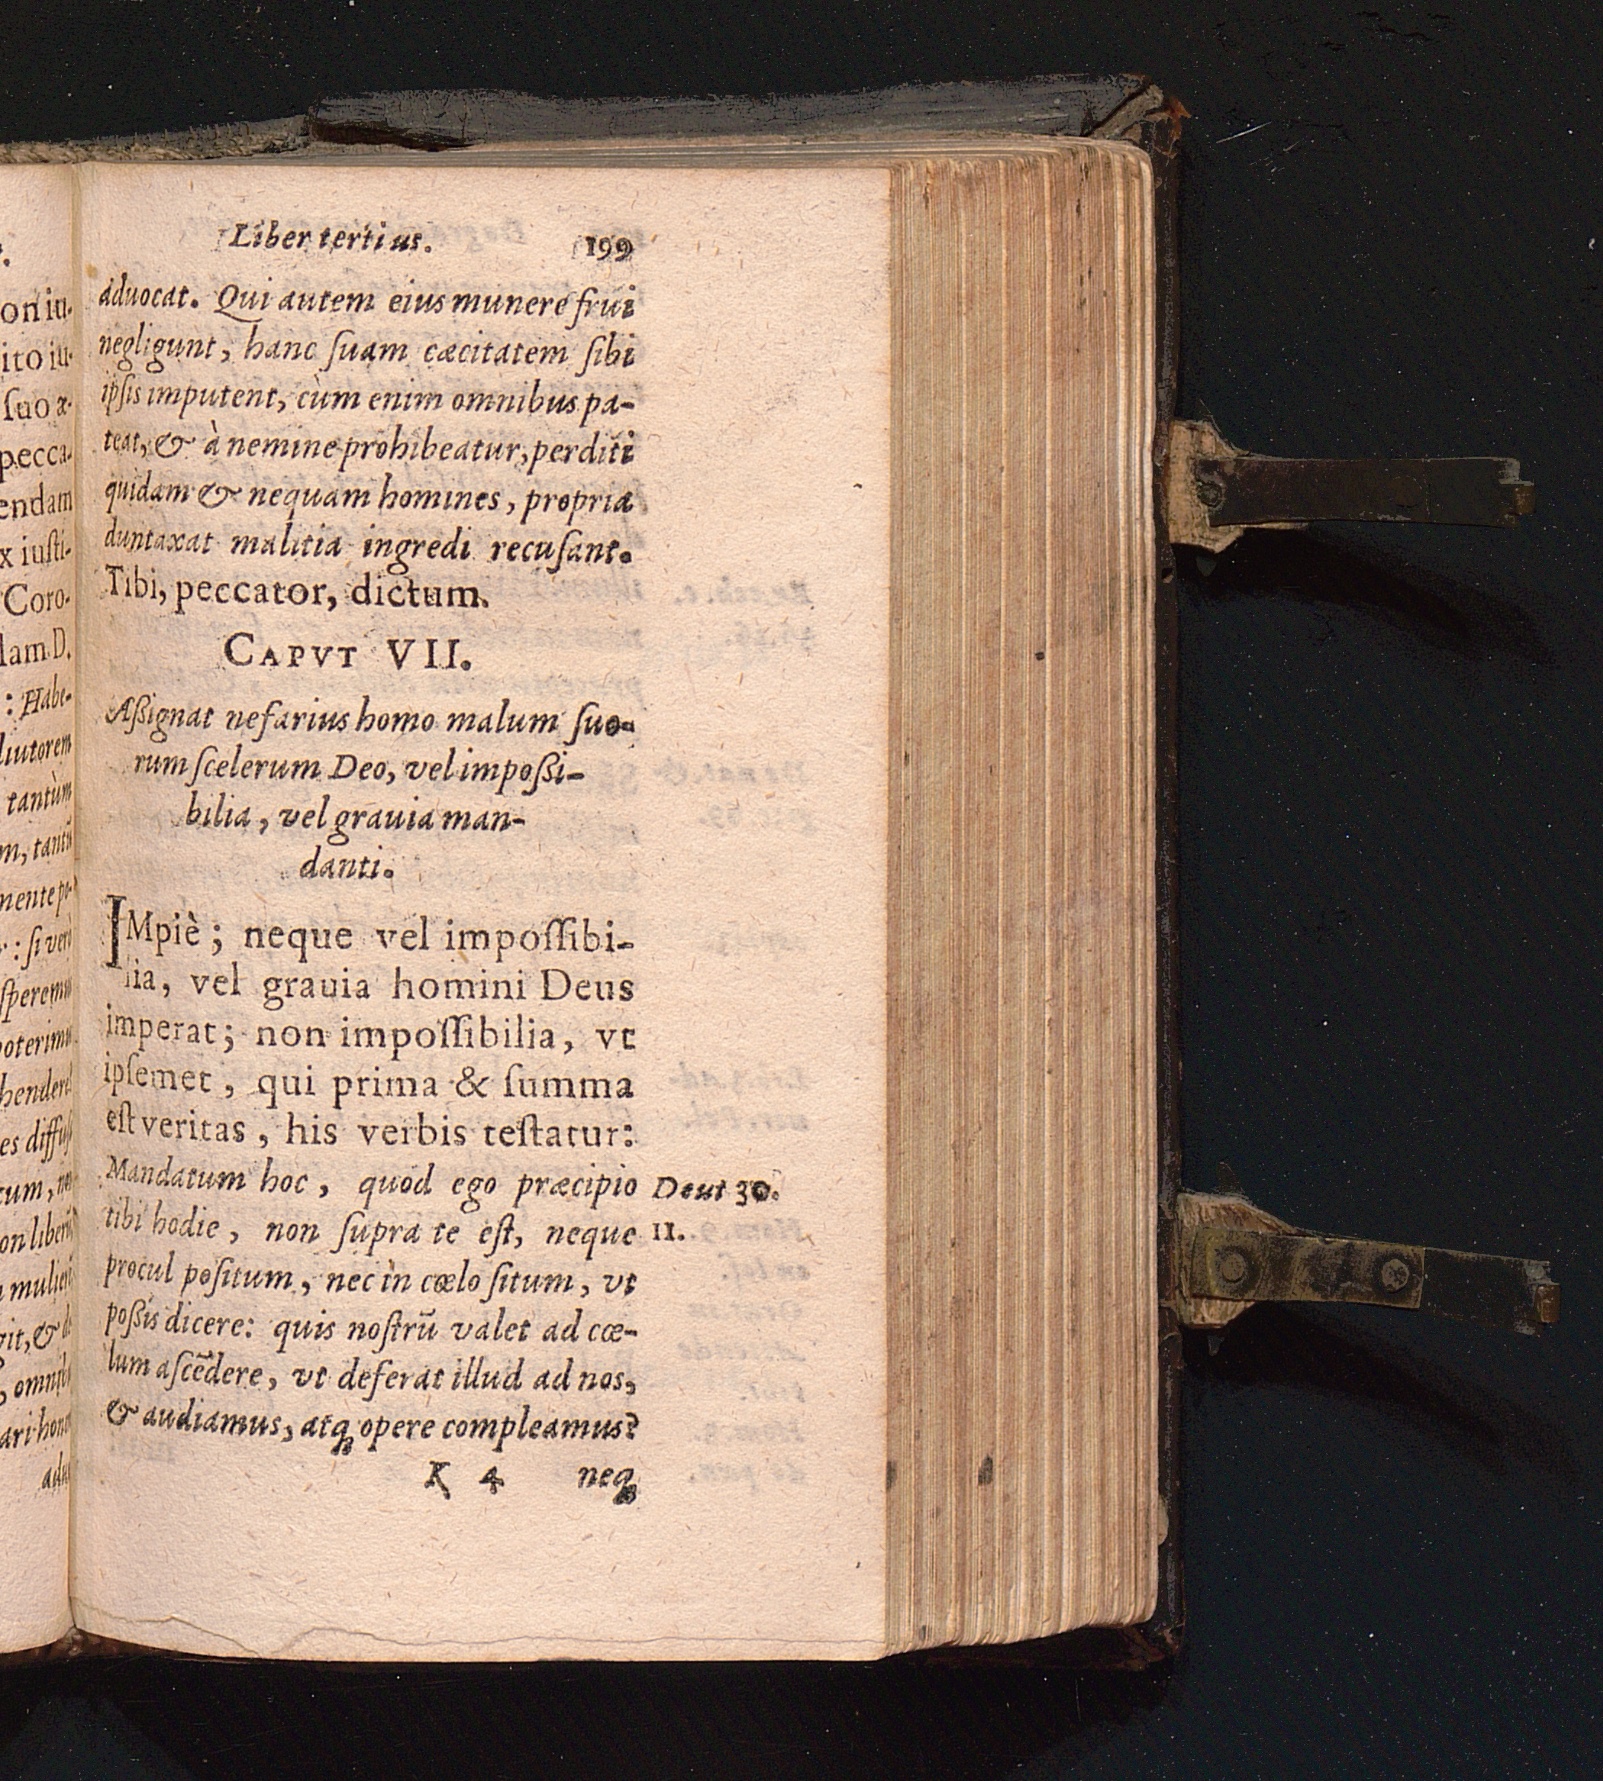 Liber tertius. 199
aduocat. Qui autem eius munere frui
negligunt, hanc ſuam cæcitatem ſibi
ipſis imputent, cùm enim omnibus pa-
teat, & à nemine prohibeatur, perditi
quidam & nequam homines, propria
duntaxat malitia ingredi recuſant.
Tibi, peccator, dictum.
CAPVT VII.
Aßignat nefarius homo malum ſuo-
rum ſcelerum Deo, vel impoßi-
bilia, vel grauia man-
danti.
IMpiè; neque vel impoſſibi-
lia, vel grauia homini Deus
imperat; non impoſſibilia, vt
ipſemet, qui prima & ſumma
eſt veritas, his verbis teſtatur:
Mandatum hoc, quod ego præcipio Deut 30.
tibi hodie, non ſupra te eſt, neque 11.
procul poſitum, nec in cœlo ſitum, vt
poßis dicere: quis noſtrũ valet ad cœ-
lum aſcẽdere, vt deferat illud ad nos,
& audiamus, atq; opere compleamus?
K 4 neq;
on iu-
ito iu-
ſuo æ-
pecca-
endam
x iuſti-
Coro-
lam D.
: Habe-
diutorem
tantùm
m, tantũ
mente po-
: ſi verò
ſperemus
poterimus
henderel
es diffuſ
tum, ne
on liberũ
mulieri
git, & de
, omnib
ari hono
adu